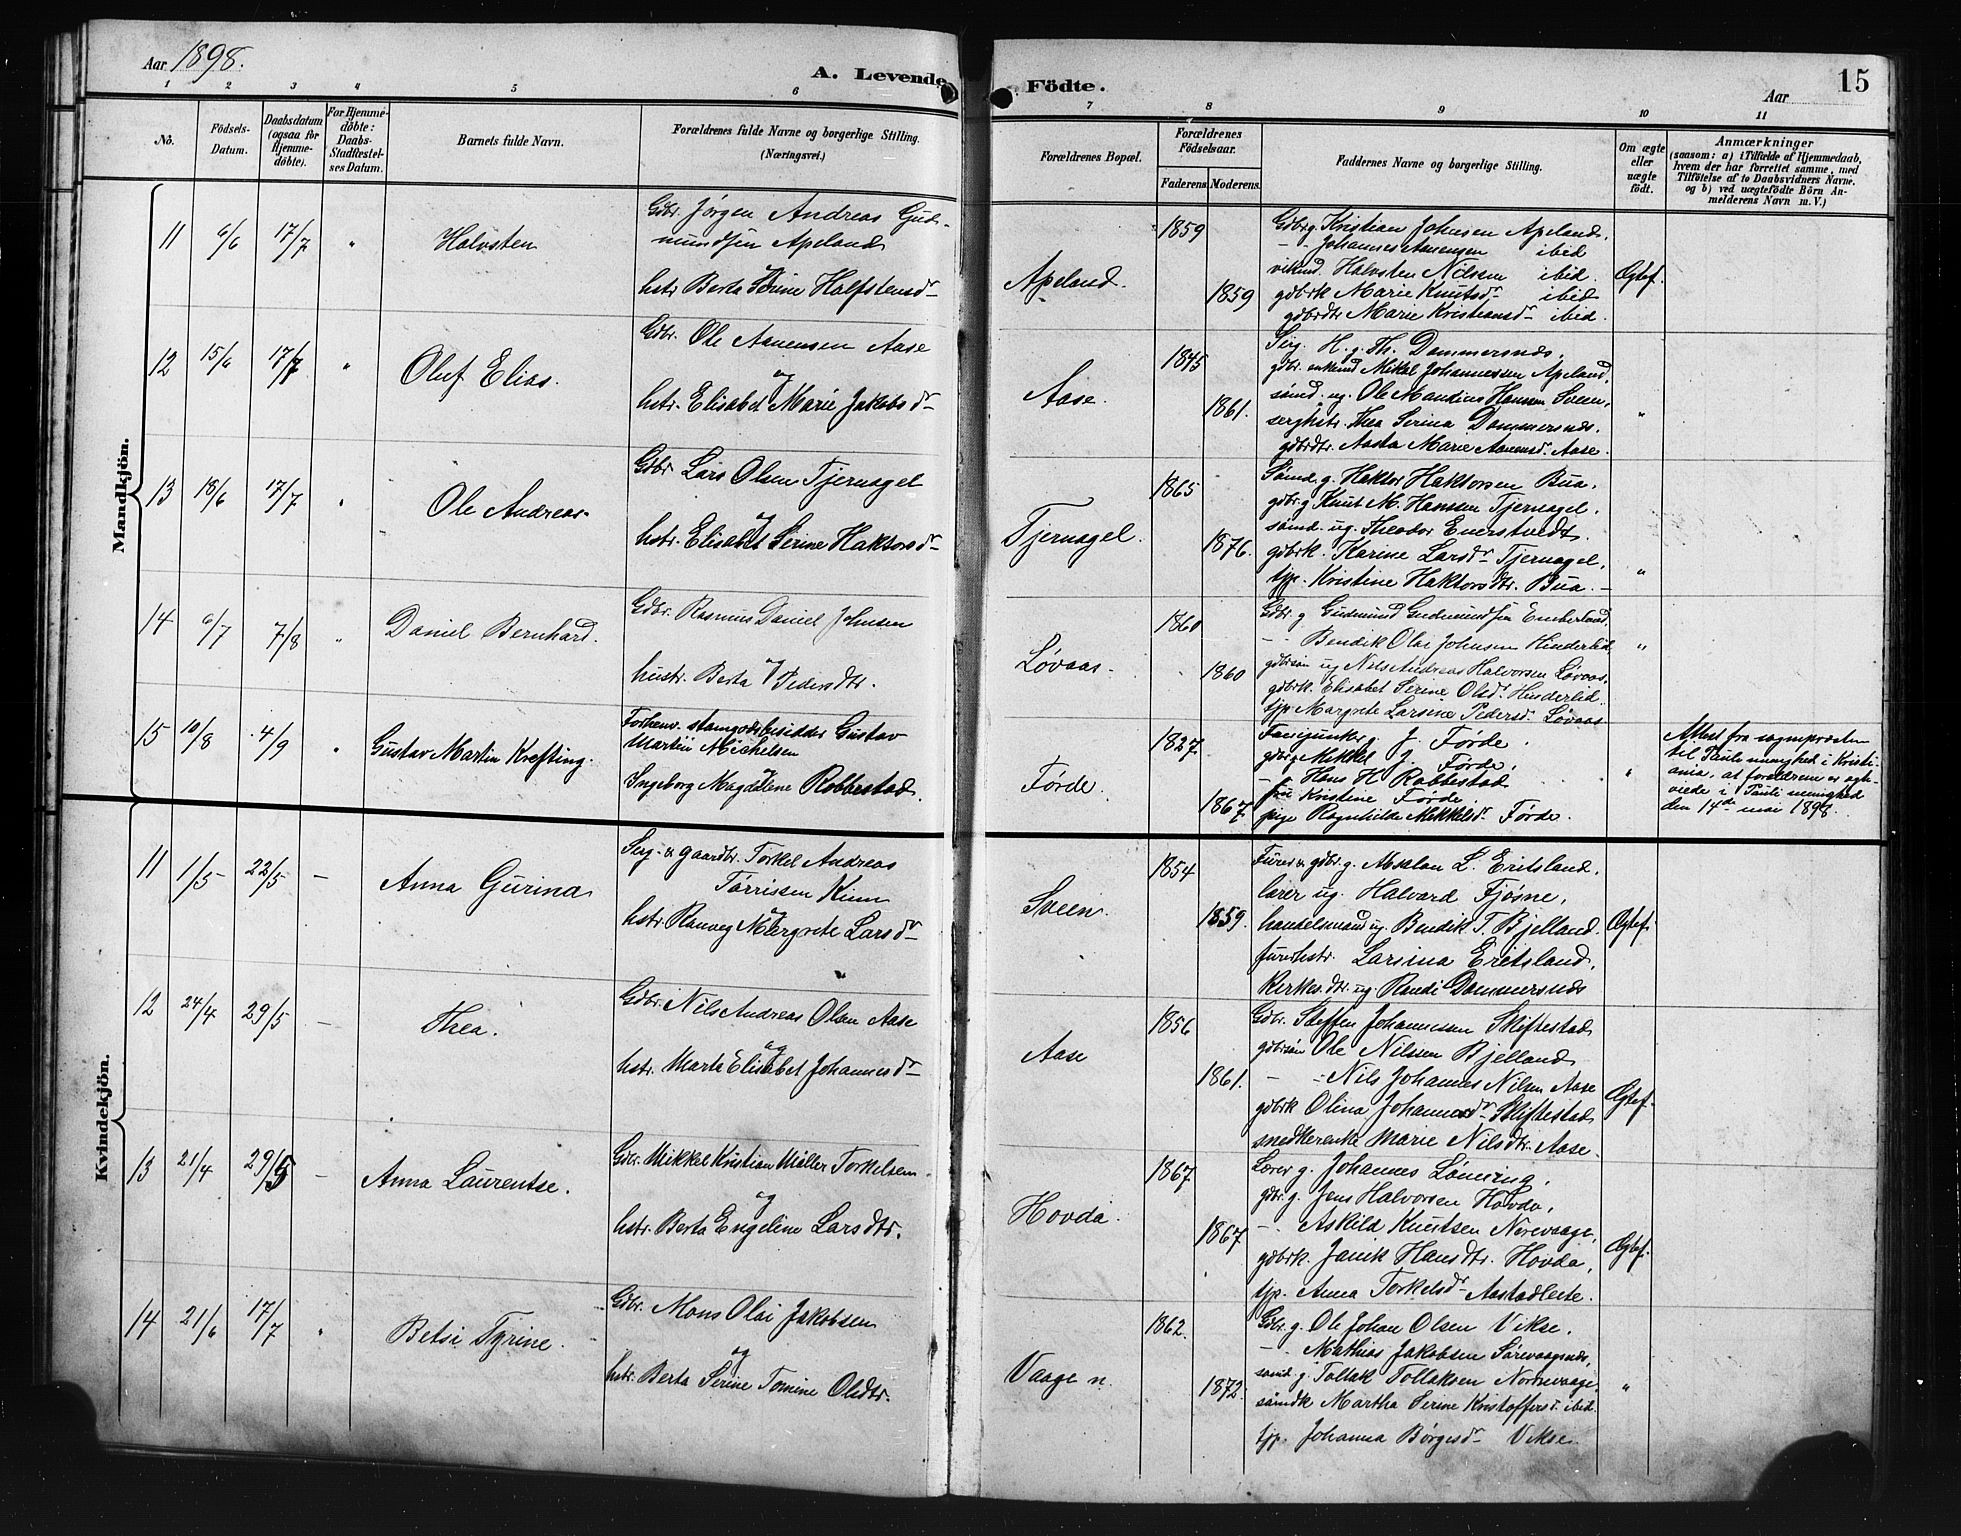 Aar 1898.
A. Levende Födte.
Aar
15
1 2 3 4 5 6 7 8 9 10 11
No.
Födsels-Datum.
Daabsdatum (ogsaa for Hjemmedöbte).
For Hjemmedöbte: Daabs-Stadfæstelses Datum.
Barnets fulde Navn.
Forældrenes fulde Navne og borgerlige Stilling. (Næringsvei.)
Forældrenes Bopæl.
Forældrenes Födselsaar.
Faderens. Moderens.
Faddernes Navne og borgerlige Stilling.
Om ægte eller uægte födt.
Anmærkninger
(saasom: a) i Tilfælde af Hjemmedaab,
hvem der har forrettet samme, med
Tilföielse af to Daabsvidners Navne.
og b) ved uægtefödte Börn An-
melderens Navn m. V.)
Mandkjön.
11 6/6 17/7 " Halvsten
Gdbr. Jørgen Andreas Gud-
mundsen Apeland
og
hstr Berta Serine Halfstensdr
Apeland.
1859
1859
Gdbrg. Kristian Johnsen Apeland.
- - Johannes Aanensen ibid
Halvsten Nilssen ibid.
gdbrk Marie Knutsdr ibid
gdbrdtr Marie Kristiansdr ibid.
Ægtef.
12 15/6 17/7 " Oluf Elias.
Gdbr. Ole Aanensen Aase
og
hstr. Elisabet Marie Jakobsdr
Aase.
1845
1861.
Serg. H. g. Th. Dommersnæs,
gdbr. enkmd Mikal Johannessen Apeland,
sømd. ug. Ole Mandius Hansen Sveen,
serghstr. Thea Serina Dommersnæs,
gdbrdtr. Aasta Marie Aanensd. Aase.
"
13 18/6 17/7 " Ole Andreas.
Gdbr Lars Olsen Tjernagel
og
hstr. Elisabet Serine Haktorsdr
Tjernagel.
1865
1876.
Sømd. g. Haktor Haktorsen Bua.
gdbr. g Knut M. Hansen Tjernagel.
sømd. ug. Theodor Enerstvedt.
gdbrk. Karine Larsdr Tjernagel,
tjp. Kristine Haktorsdtr. Bua.
"
14 6/7 7/8 " Daniel Bernhard.
Gdbr. Rasmus Daniel Johnsen
og
hustr. Berta Pedersdtr.
Løvaas.
1860
1860
Gdbr g Gudmund Gudmundsen Emberland,
- - Bendik Olai Johnsen Hinderlid
gdbrsøn ug Nils Andreas Halvorsen Løvaas,
gdbrk. Elisabet Serine Olsdr. Hinderlid.
tjp Margrete Larsine Pedersd. Løvaas
"
15 10/8 4/9 " Gustav Martin Krefting.
Forhenv. stamgodsbesidder Gustav
Martin Michelsen
og
Ingeborg Magdalene Robbestad.
Førde.
1827.
1867
Fanejunker g. J. Førde.
gdbr g Mikkel J. Førde,
- Hans H. Robbestad
fru Kristine Førde
pige Ragnhilde Mikkelsdr Førde.
"
Attest fra sognepræsten
til Pauli menighed i Kristi-
ania, at forældrene er egte-
viede i Pauli menighed
den 14de mai 1898.
Kvindekjön.
11 1/5 22/5 - Anna Gurina
Serg. & gaardbr. Torkel Andreas
Tørrissen Kinn
og
hstr. Ranveig Margrete Larsdr
Sveen.
1854
1859.
Furer & gdbr. g. Absalon L. Eritsland,
lærer ug. Halvard Fjøsne,
handelsmand ug. Bendik T. Bjelland.
furerhstr. Larsina Eritsland,
Kirkes.dtr. ug. Randi Dommersnæs
Ægtef.
12 24/4 29/5 - Thea.
Gdbr. Nils Andreas Olsen Aase
og
hstr. Marta Elisabet Johannesdr
Aase
1856
1861.
Gdbr. Steffen Johannessen Skiftestad
gdbrsøn Ole Nilssen Bjelland
- - Nils Johannes Nilsen Aase
gdbrk Olina Johannesdr Skiftestad
snedkerenke Marie Nilsdtr. Aase.
Ægtef.
13 21/4 29/5 - Anna Laurentse.
Gdbr. Mikkel Kristian Møller Torkelsen
og
hstr. Berta Engeline Larsdtr.
Hovda.
1867
1867
Lærer g. Johannes Lønning,
gdbr. g. Jens Halvorsen Hovda,
- Askild Knutsen Norevaage,
gdbrk. Janik Hansdtr. Hovda,
tjp. Anna Torkelsdr Aastadleite.
Ægtef.
14 21/6 17/7 " Betsi Tyrine.
Gdbr. Mons Olai Jakobsen
og
hstr. Berta Serine Tomine Olsdtr.
Vaage n.
1862.
1872.
Gdbr. g. Ole Johan Olsen Vikse,
- - Mathias Jakobsen Sørevaagnæs,
sømd g. Tollak Tollaksen Norevaage,
sømdk Martha Serine Kristoffersd. ibid.
tjp. Johanna Børgesdr Vikse.
"